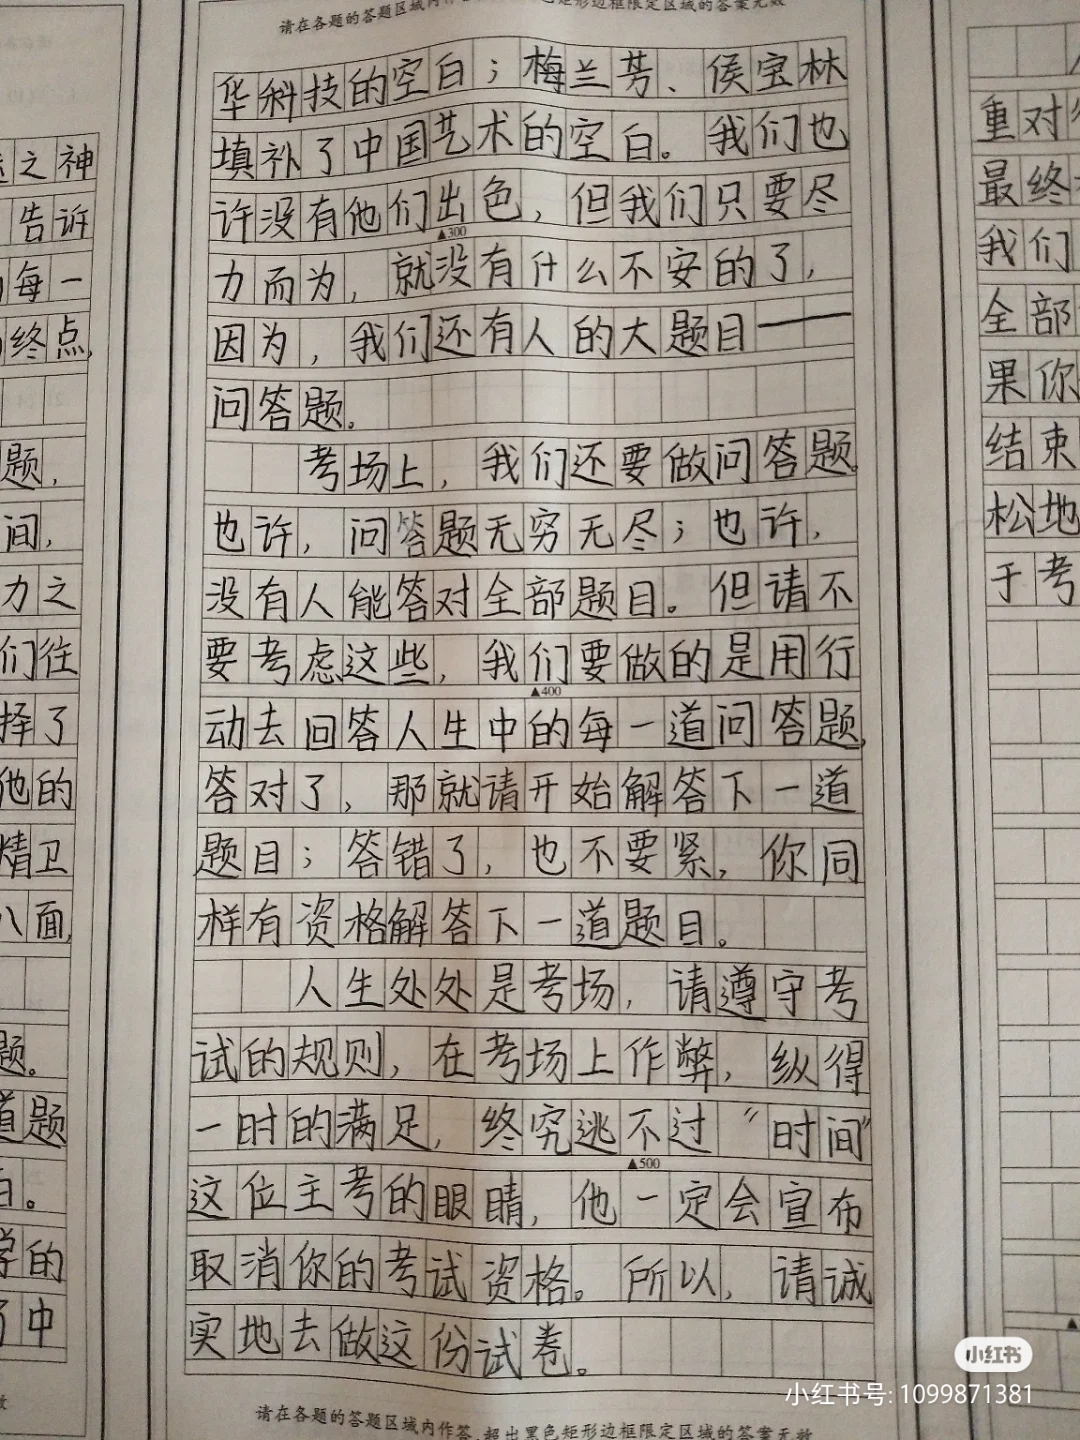 请在各题的答题区域内作
色矩形边框限定区域的答案无效
之神
告诉
每一
终点,
题,
间,
力之
们往
择了
他的
精卫
八面,
题。
道题
白。
学的
了中
华科技的空白;梅兰芳、侯宝林
填补了中国艺术的空白。我们也
许没有他们出色,但我们只要尽
▲300
力而为,就没有什么不安的了,
因为,我们还有人的大题目——
问答题。
考场上,我们还要做问答题。
也许,问答题无穷无尽;也许,
没有人能答对全部题目。但请不
要考虑这些,我们要做的是用行
▲400
动去回答人生中的每一道问答题,
答对了,那就请开始解答下一道
题目;答错了,也不要紧,你同
样有资格解答下一道题目。
人生处处是考场,请遵守考
试的规则,在考场上作弊,纵得
一时的满足,终究逃不过“时间”
▲500
这位主考的眼睛,他一定会宣布
取消你的考试资格。所以,请诚
实地去做这份试卷。
请在各题的答题区域内作答,超出黑色矩形边框限定区域的答案无效
重对
最终
我们
全部
果你
结束
松地
于考
小红书
小红书号: 1099871381